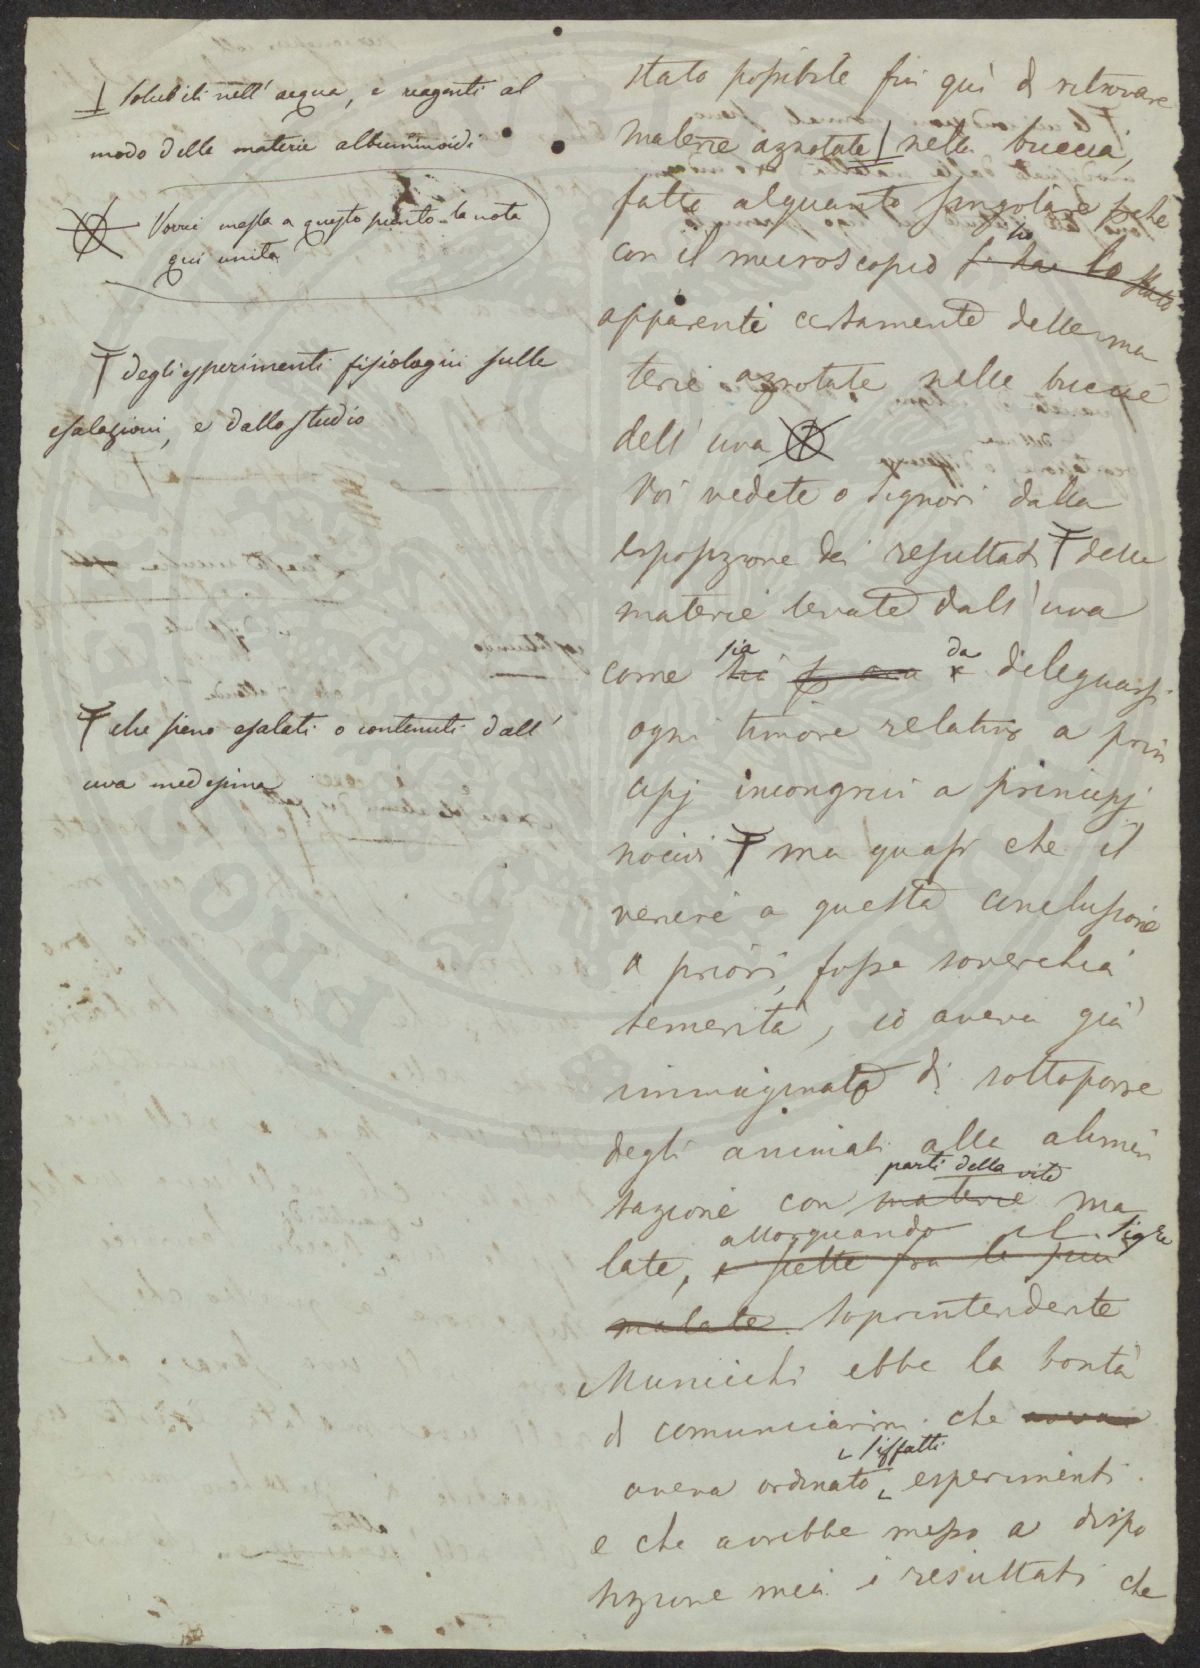 ⊥ solubili nell'acqua, e reagenti al
modo delle materie albuminoidi
Vorrei messa a questo punto la nota
qui unita
degli sperimenti fisiologici sulle
esalazioni, e dallo studio
che sieno esalati o contenuti dall'
uva medesima
stato possibile fin qui di ritrovare
materie azzotate nella buccia,
fatto alquanto singolare
con il microscopio
apparenti certamente delle ma
terie azzotate nelle buccie
dell'uva
Voi vedete o Signori dalla
esposizione dei resultati delle
materie levate dall'uva
come sia da dileguarsi
ogni timore relativo a prin
cipj incongrui a principj
nocivi ma quasi che il
venire a questa conclusione
a priori, fosse soverchia
temerità, io aveva già
immaginato di sottoporre
degli animali alla alimen
tazione con materie parti della vite ma
late, e scelte fra le più allorquando il Sigre
malate soprintendente
Municchi ebbe la bontà
di comunicarmi che
aveva ordinato siffatti esperimenti
e che avrebbe messo a dispo
sizione mia i resultati che